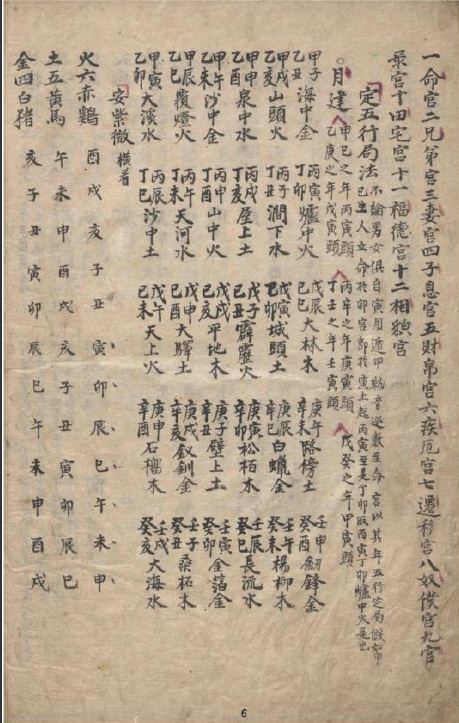 一命宫二兄弟宫三妻宫四子息宫五財帛宫六疾厄宫七遷移宫八奴僕宫九官
录宫十田宅宫十一福德宫十二相貌宫
定五行局法 不論男女俱自寅用遁甲納音逆數至命宫以其年五行定局假如甲
己生人立命於卯宫卽於寅上起丙寅至是丁卯取丙寅丁卯爐中火是也
月建 甲己之年丙寅頭 乙庚之年戊寅頭 丙辛之年庚寅頭 丁壬之年壬寅頭 戊癸之年甲寅頭
甲子乙丑海中金 丙寅丁卯爐中火 戊辰己巳大林木 庚午辛未路傍土 壬申癸酉釼鋒金
甲戌乙亥山頭火 丙子丁丑澗下水 戊寅己卯城頭土 庚辰辛巳白蠟金 壬午癸未楊柳木
甲申乙酉泉中水 丙戌丁亥屋上土 戊子己丑霹靂火 庚寅辛卯松栢木 壬辰癸巳長流水
甲午乙未沙中金 丙申丁酉山中火 戊戌己亥平地木 庚子辛丑壁上土 壬寅癸卯金箔金
甲辰乙巳覆燈火 丙午丁未天河水 戊申己酉大驛土 庚戌辛亥釵釧金 壬子癸丑桑柘木
甲寅乙卯大溪水 丙辰丁巳沙中土 戊午己未天上火 庚申辛酉石榴木 壬戌癸亥大海水
安紫微 橫看
火六赤鷄 酉戌亥子丑寅卯辰巳午未申
土五黄馬 午未申酉戌亥子丑寅卯辰巳
金四白猪 亥子丑寅卯辰巳午未申酉戌
6